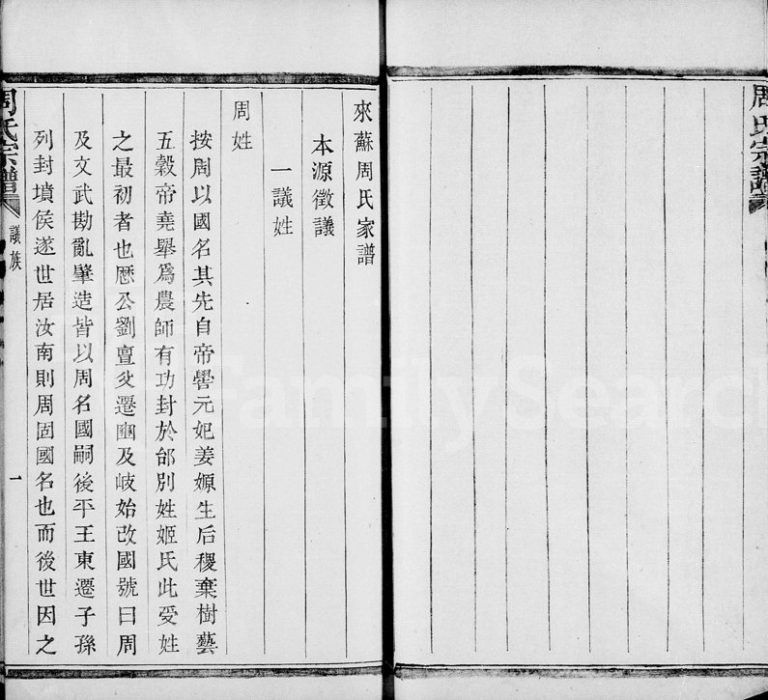 周氏宗譜
來蘇周氏家譜
本源徵議
一議姓
周姓
按周以國名其先自帝嚳元妃姜嫄生后稷棄樹藝
五穀帝堯舉爲農師有功封於邰別姓姬氏此受姓
之最初者也厯公劉亶父遷豳及岐始改國號曰周
及文武勘亂肇造皆以周名國嗣後平王東遷子孫
列封墳侯遂世居汝南則周固國名也而後世因之
周氏宗譜
議族
一
FamilySearch